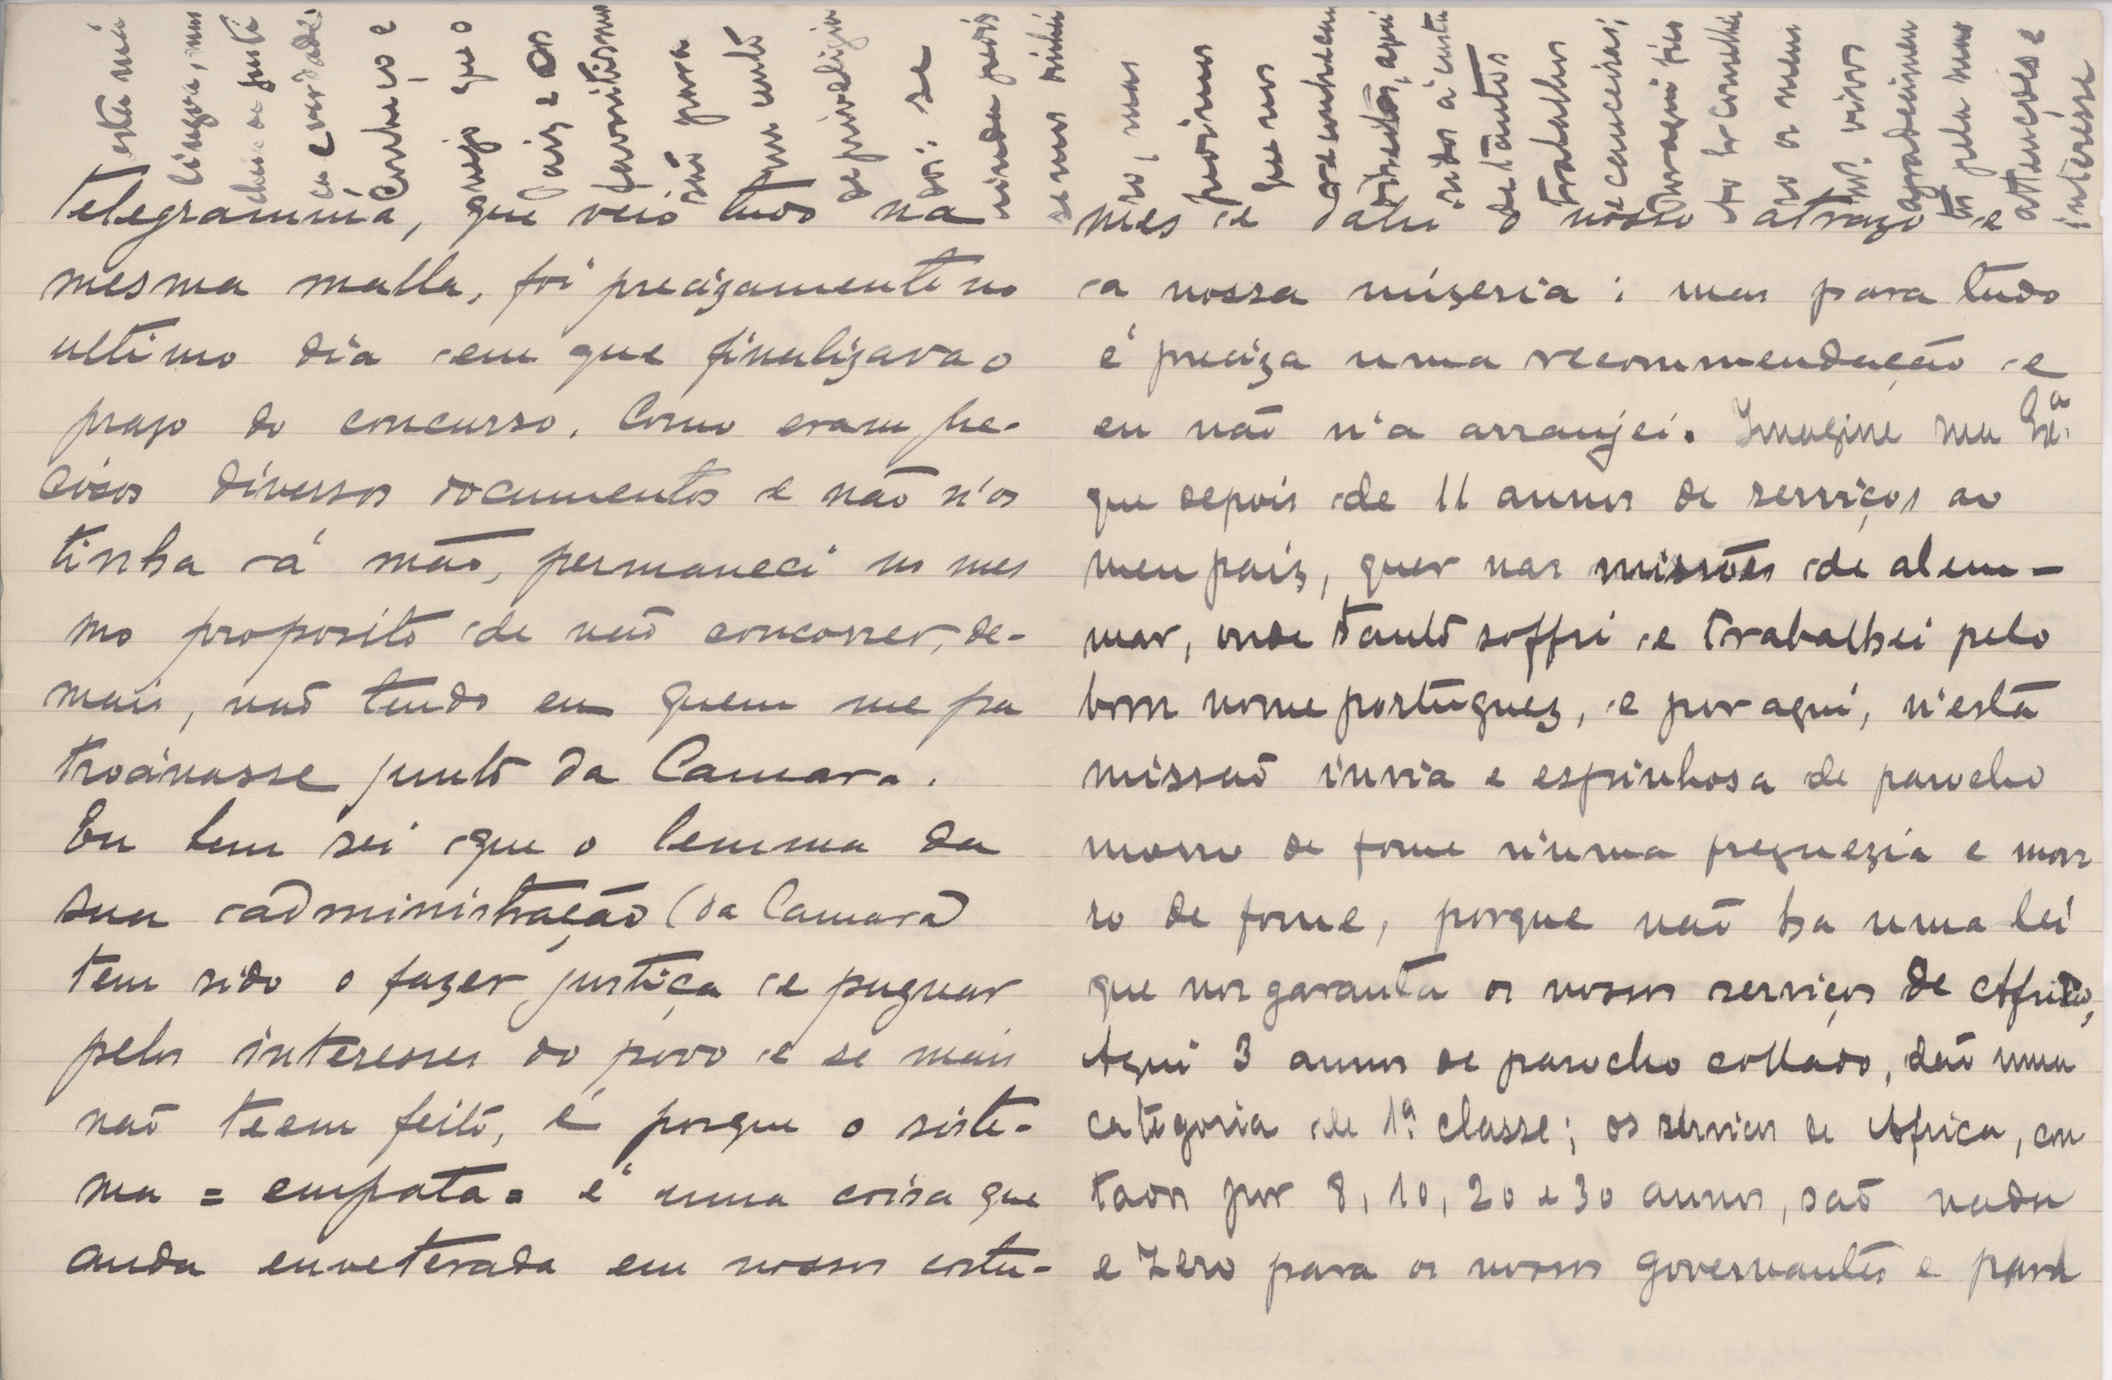 telegramma, que veio tudo na
mesma malla, foi precizamente no
ultimo dia em que finalizava o
prazo do concurso. Como eram pre-
cisos diversos documentos e não n'os
tinha á mão, permaneci no mes
mo proposito de não concorrer, de-
mais, não tendo eu quem me pa
trocinasse junto da Camara.
Eu bem sei que o lemma da
sua administração (da Camara)
tem sido o fazer justiça e pugnar
pelos interesses do povo e se mais
não teem feito, é porque o siste-
ma = empata = é uma coisa que
anda enveterada em nossos costu-
mes e dahi o nosso atrazo e
a nossa mizeria; mas para tudo
é preciza uma recommendação e
eu não n'a arranjei. Imagine
que depois de 11 annos de serviços ao
meu paiz, quer nas missões de alem-
mar, onde tanto soffri e trabalhei pelo
bom nome portuguez, e por aqui, n'esta
missão invia e espinhosa de parocho
morro de fome n'uma freguezia e mor
ro de fome, porque não ha uma lei
que nos garanta os nossos serviços de Africa,
Aqui 3 annos de parocho collado, dão uma
categoria de 1ª classe; os serviços de Africa, con
tados por 8, 10, 20 e 30 annos, são nada
e zero para os nossos governantes e para
esta má
lingoa, mas
cheia de justi
ça e verdade.
Conheço e
vejo que o
Paiz e os
favoritismo
são para
quem então
se priveligia
do: se
ainda pois
se nos dinhei
ro, mas
que nos
direitos, aqui
á custa
de tantos
trabalhos
e canceiras,
Por aqui fico
os meus
vivos
agradecimen
tos pela sua
attenções e
interesse